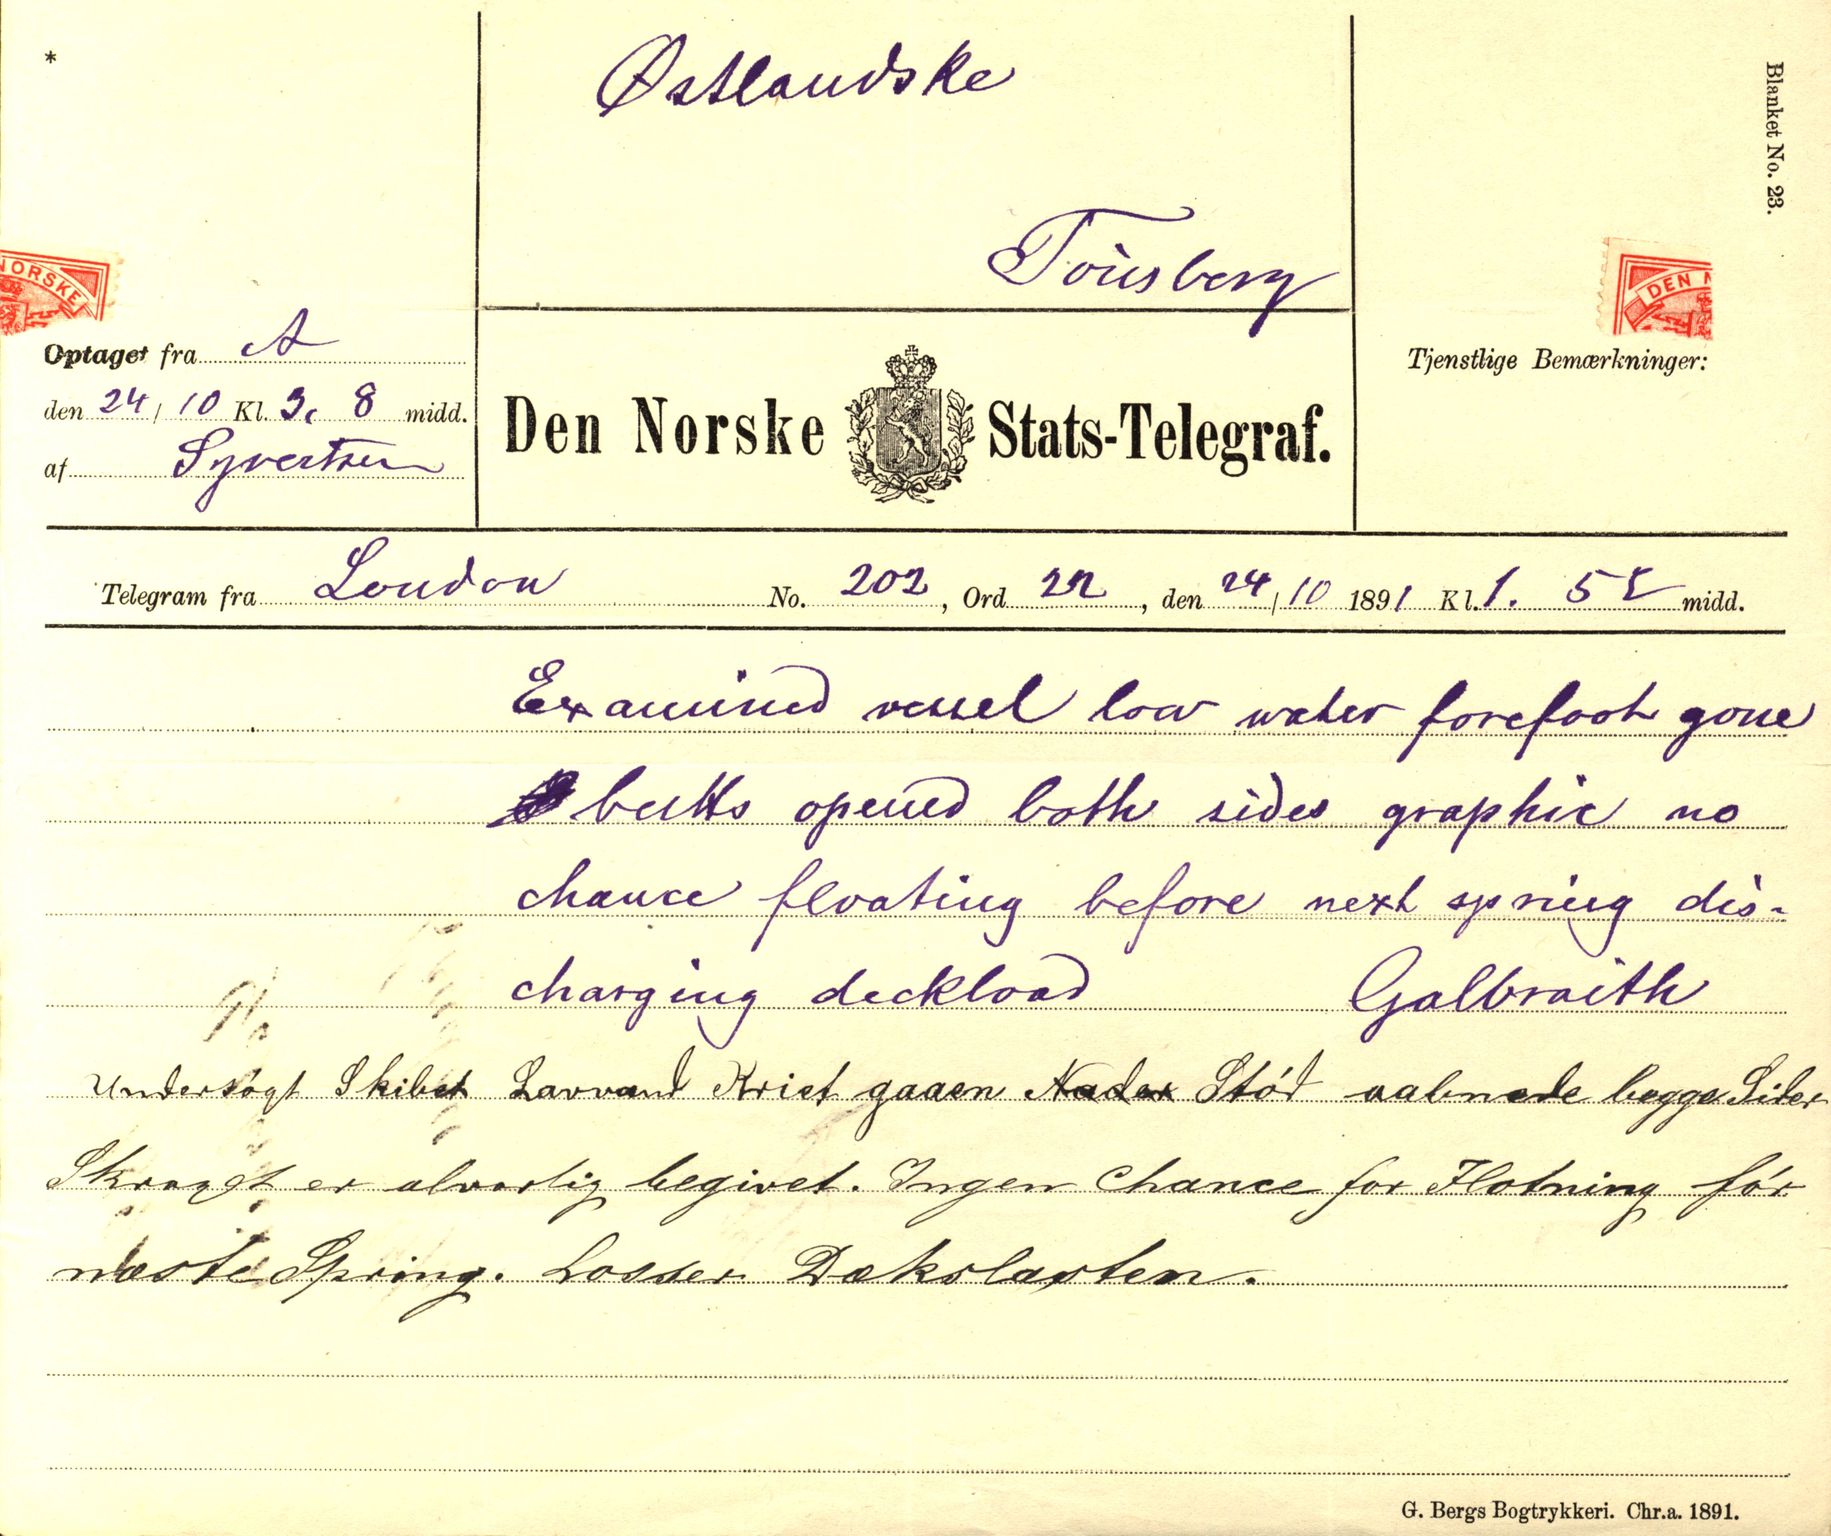 *
Østlandske
Tönsberg
Blanket No. 23.
NORSKE
DEN N
Optaget fra A
den 24/10 Kl. 3. 8 midd.
af Syvertsen
Den Norske Stats-Telegraf.
Tjenstlige Bemærkninger:
Telegram fra London No. 202, Ord 22, den 24/10 1891 Kl. 1. 55 midd.
Examined vessel low water forefoot gone
butts opened both sides graphic no
chance floating before next spring dis-
charging deckload Galbraith
Undersøgt Skibet Lavvand Kriet gaaen Stød aabnede begge Sider
er alvorlig begivet. Ingen Chance for Flotning før
næste Spring. Losser Dækslasten.
G. Bergs Bogtrykkeri. Chr.a. 1891.